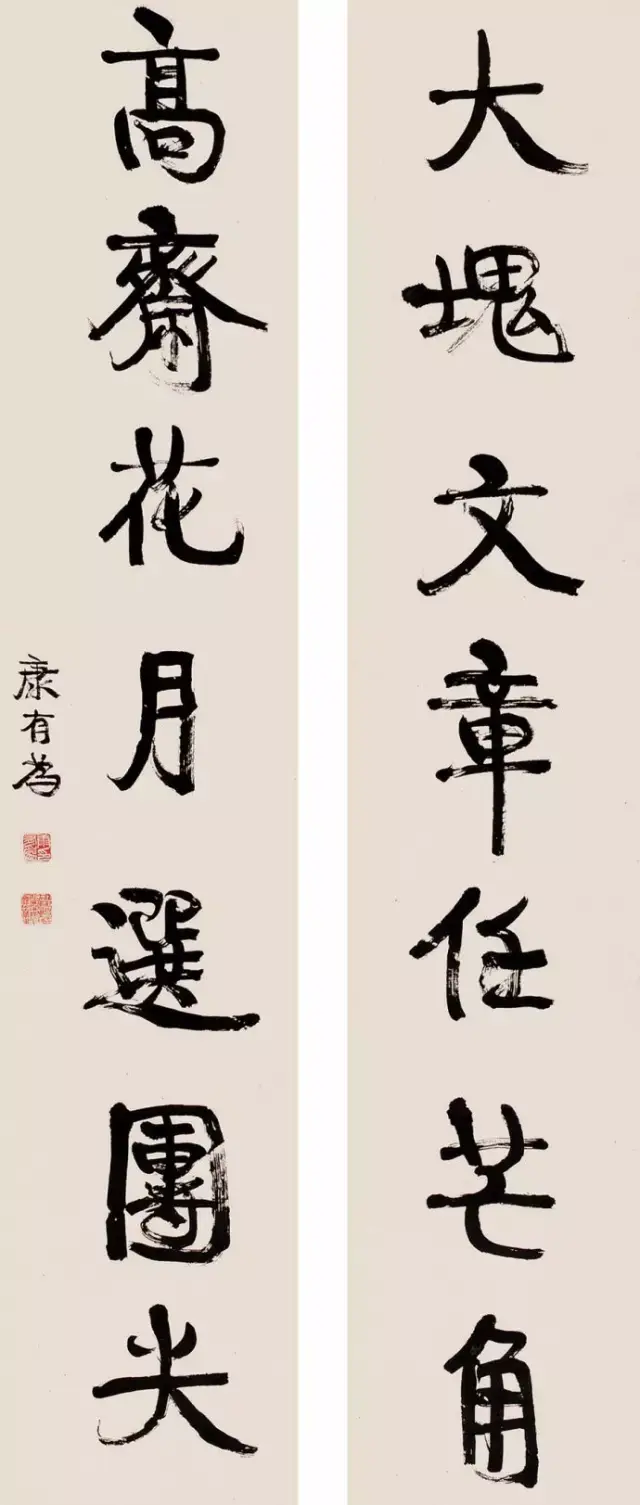 大塊文章任芒角
高齋花月選團尖
康有為